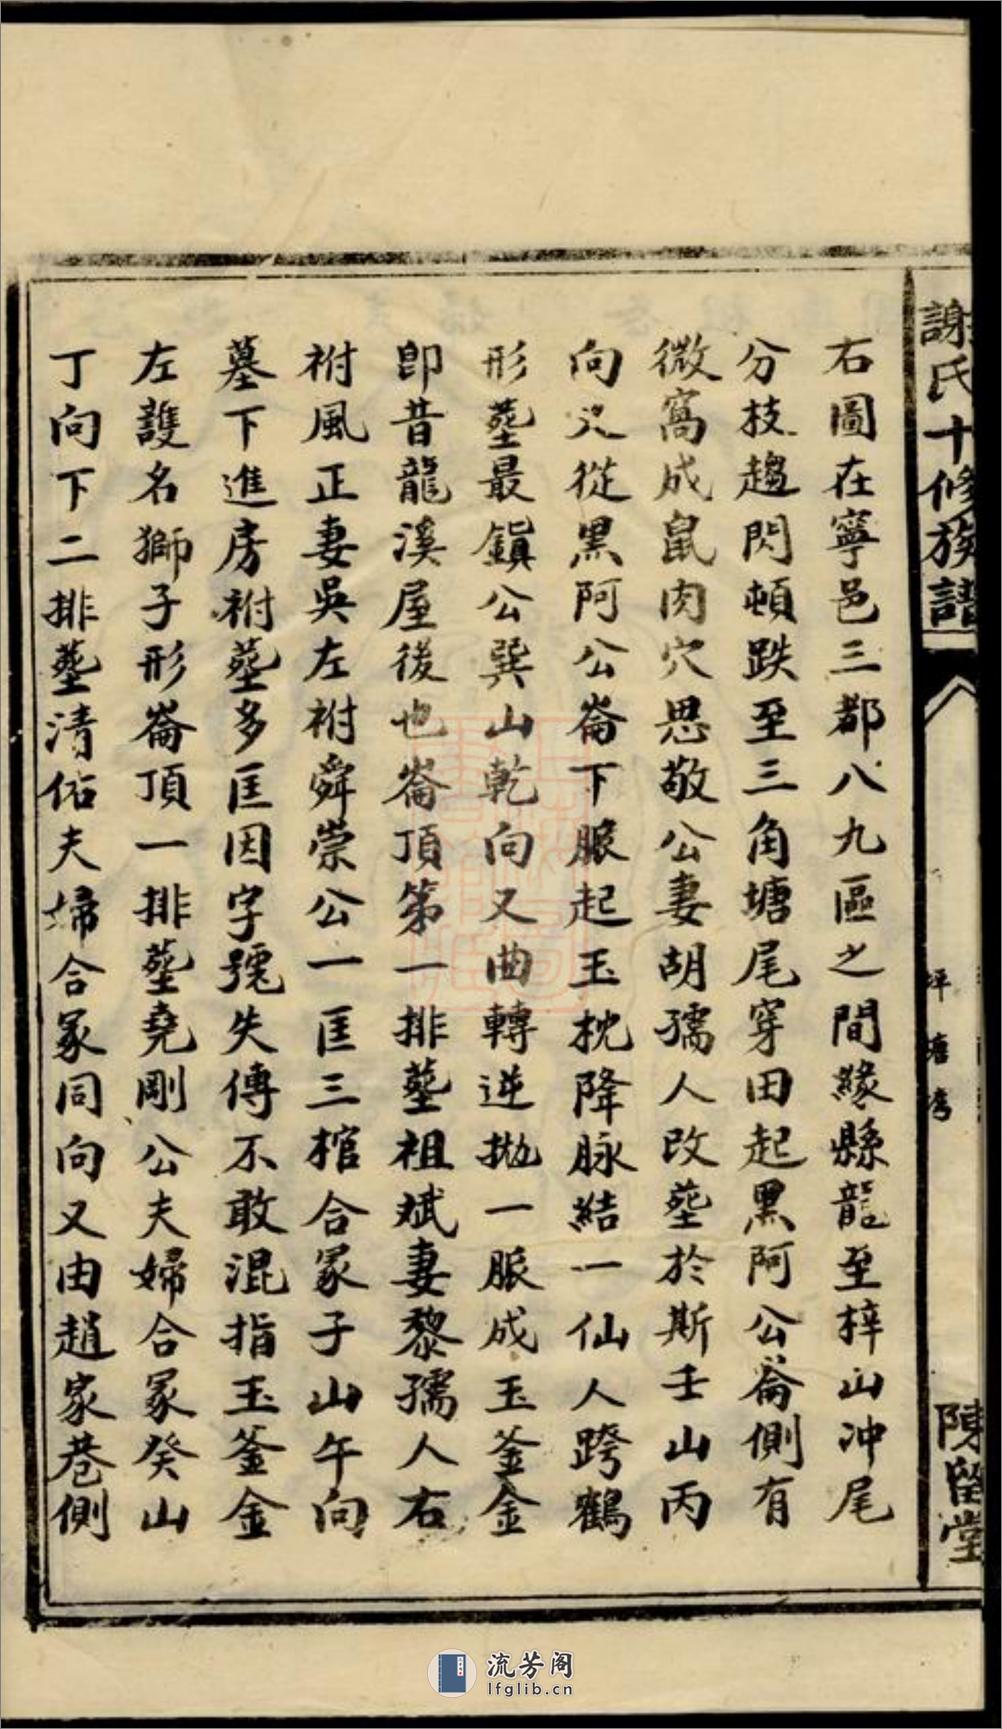 謝氏十修族譜
坪塘灣
陳留堂
右圖在寧邑三都八九區之間緣縣龍至梓山冲尾
分枝趨閃頓跌至三角塘尾穿田起黑阿公崙側有
微窩成鼠肉穴思敬公妻胡孺人改塟於斯壬山丙
向又從黑阿公崙下脹起玉枕降脉結一仙人跨鶴
形塟最鎮公巽山乾向又曲轉逆拋一脹成玉釜金
即昔龍溪屋後也崙頂第一排塟祖斌妻黎孺人右
祔風正妻吳左祔舜崇公一匡三棺合冢子山午向
墓下進房祔塟多匡因字號失傳不敢混指玉釜金
左護名獅子形崙頂一排塟堯剛公夫婦合冢癸山
丁向下二排塟清佑夫婦合冢同向又由趙家巷側
流芳阁
lfglib.cn